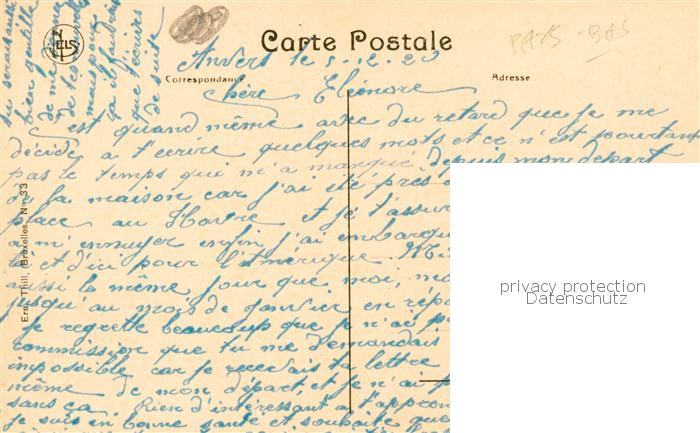 tu serais aussi
bien gentille
de me donner
de tes nouvelles
mais pour
ça il faudrait
que t'écrives
de suite
NELS
Carte Postale
PAYS-BAS
Anvers le 5-12-20
Correspondance
Adresse
Chère Eléonore
C'est quand même avec du retard que je me
décide a t'ecrire quelques mots et ce n'est pourtant
pas le temps qui m'a manqué depuis mon départ
de la maison car j'ai été près
place au Havre et je t'assur
a m'ennuyer enfin j'ai embarqu
et d'ici pour l'Amérique
aussi le même jour que moi,
jusqu'au mois de Janvier en répo
je regrette beaucoup que je n'ai p
commission que tu me demandais
impossible car je recevais ta lettre
même de mon départ, et je n'ai
sans ça. Rien d'intéressant a t'appren
je suis en bonne santé et souhaite que
Ern. Thill, Bruxelles, No 33
privacy protection
Datenschutz